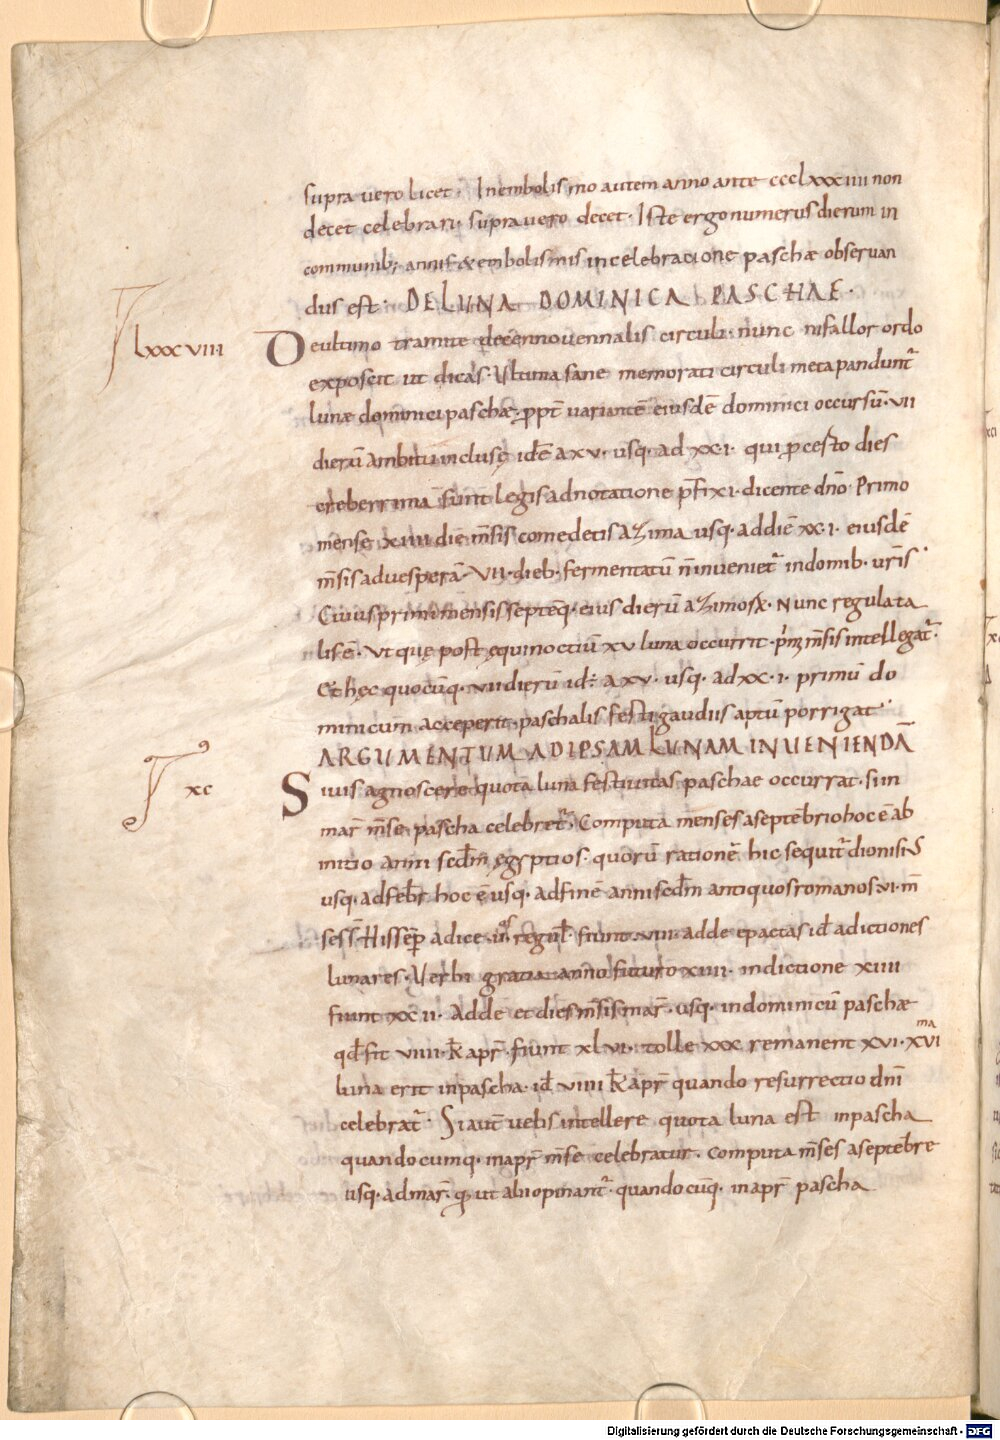 supra uero licet. Inembolismo autem anno ante ccclxxxiiii non
decet celebrari. supra uero decet. Iste ergo numerus dierum in
communib; annis & embolismis in celebratione paschæ obseruan
dus est. DE LUNA DOMINICA PASCHAE.
lxxxviiii
De ultimo tramite decennouennalis circuli. nunc nifallor ordo
exposcit ut dicas. Ultima sane memorati circuli meta pandunt᷑
lunæ dominici paschæ. ꝓpt̄ uariantē eiusdē dominici occursū. vii
dierū ambitu inclusę idē̄ a xv. usq. ad xxi. qui ꝓcesto dies
creberrima sunt legis adnotatione p̄fixi. dicente dn̄o. Primo
mense xiiii die m̄sis comedetis azima usq. ad diē xxi. eiusdē
m̄sis aduesperā. VII. dieb. fermentatū n̄ inueniet᷑ indomib. ur̄is.
Cuius primi mensis septēq. eius dierū azimos&. Nunc regulata
lis ē. Ut que post equinoctiū xv luna occurrit. prim; m̄sis intellegat᷑.
Et hęc quocūq. vii dierū id: a xv. usq. ad xxi. primū do
minicum acceperit. paschalis festi gaudiis aptū porrigat.
ARGUMENTUM AD IPSAM LUNAM INUENIENDĀ
xc
Siuis agnoscere quota luna festiuitas paschae occurrat. si in
mar̄ m̄se pascha celebret᷑. Computa menses a septēbrio hoc ē ab
initio anni scdm̄ ęgyptios. quorū rationē hic sequit᷑ dionisius
usq. ad feb̄r hoc ē usq. ad finē anni scdm̄ antiquos romanos vi. m̄
ses. His semp̄ adice ii os regul̄. fiunt viii. adde epactas id̄ adictiones
lunares. Verbi gratia anno futuro xiiii. indictione xiiii
fiunt xxii. Adde et dies m̄sis mar̄. usq. in dominicū paschæ
qd̄ fit viiii. k̄ apr̄. fiunt xlvi. tolle xxx remanent xvi. xvi ma
luna erit in pascha. id̄ viiii k̄ apr̄ quando resurrectio dn̄i
celebrat᷑. Si aut̄ uebs intellere quota luna est in pascha
quandocumq. in apr̄ m̄se celebratur. computa m̄ses a septēbre
usq. ad mar̄. ut alii opinant᷑. quandocūq. in apr̄ pascha
Digitalisierung gefördert durch die Deutsche Forschungsgemeinschaft - DFG